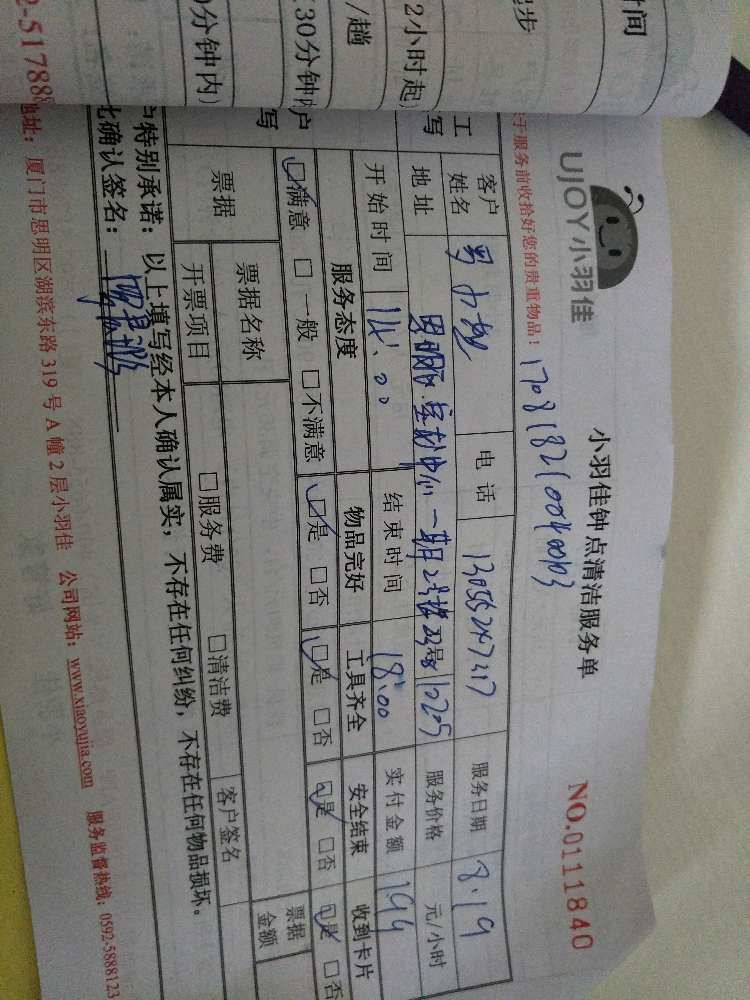 UJOY小羽佳
小羽佳钟点清洁服务单
NO.0111840
于服务前收拾好您的贵重物品！
客户姓名 电话 服务日期 8.19
地址 服务价格 元/小时
开始时间 14:00 结束时间 18:00 实付金额 194
服务态度 物品完好 工具齐全 安全结束 收到卡片
☑满意 □一般 □不满意 ☑是 □否 ☑是 □否 ☑是 □否 ☑是 □否
票据 票据名称 客户签名 票据金额
开票项目 □服务费 □清洁费
户特别承诺：以上填写经本人确认属实，不存在任何纠纷，不存在任何物品损坏。
比确认签名：
地址：厦门市思明区湖滨东路319号A幢2层小羽佳 公司网站：www.xiaoyujia.com 服务监督热线：0592-5888123
时间
2小时起
/趟
30分钟内
0分钟内）
2-51788